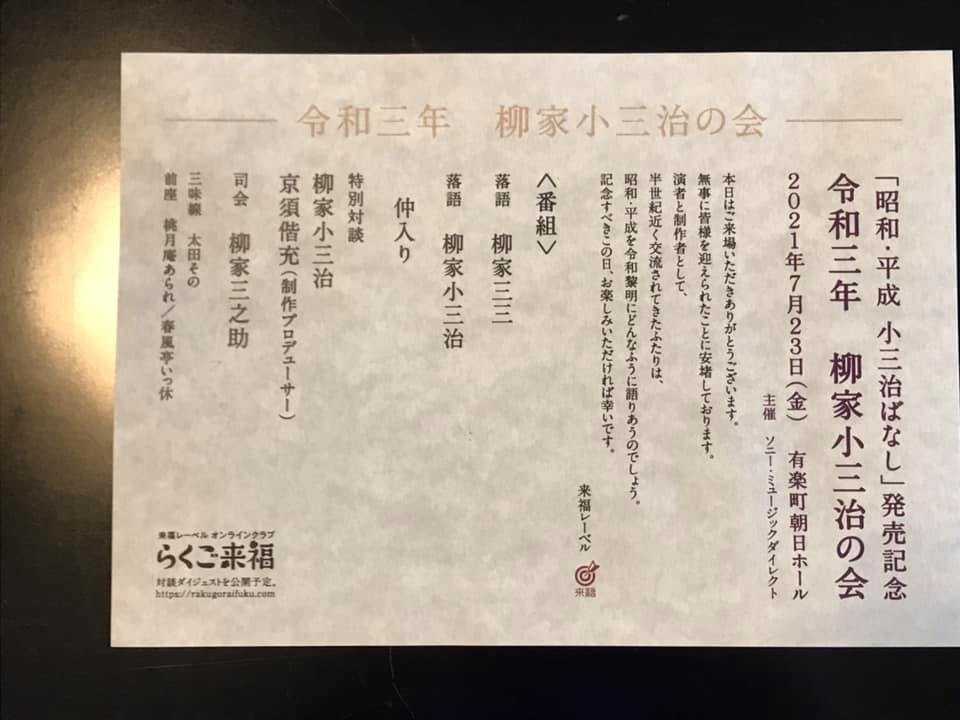 令和三年　柳家小三治の会
「昭和・平成 小三治ばなし」発売記念
令和三年　柳家小三治の会
2021年7月23日(金)　有楽町朝日ホール
主催　ソニー・ミュージックダイレクト
本日はご来場いただきありがとうございます。
無事に皆様を迎えられたことに安堵しております。
演者と制作者として、
半世紀近く交流されてきたふたりは、
昭和・平成を令和黎明にどんなふうに語りあうのでしょう。
記念すべきこの日、お楽しみいただければ幸いです。
来福レーベル
来福
〈番組〉
落語　柳家三三
落語　柳家小三治
仲入り
特別対談
柳家小三治
京須偕充(制作プロデューサー)
司会　柳家三之助
三味線　太田その
前座　桃月庵あられ／春風亭いっ休
来福レーベル オンラインクラブ
らくご来福
対談ダイジェストを公開予定。
https://rakugoraifuku.com